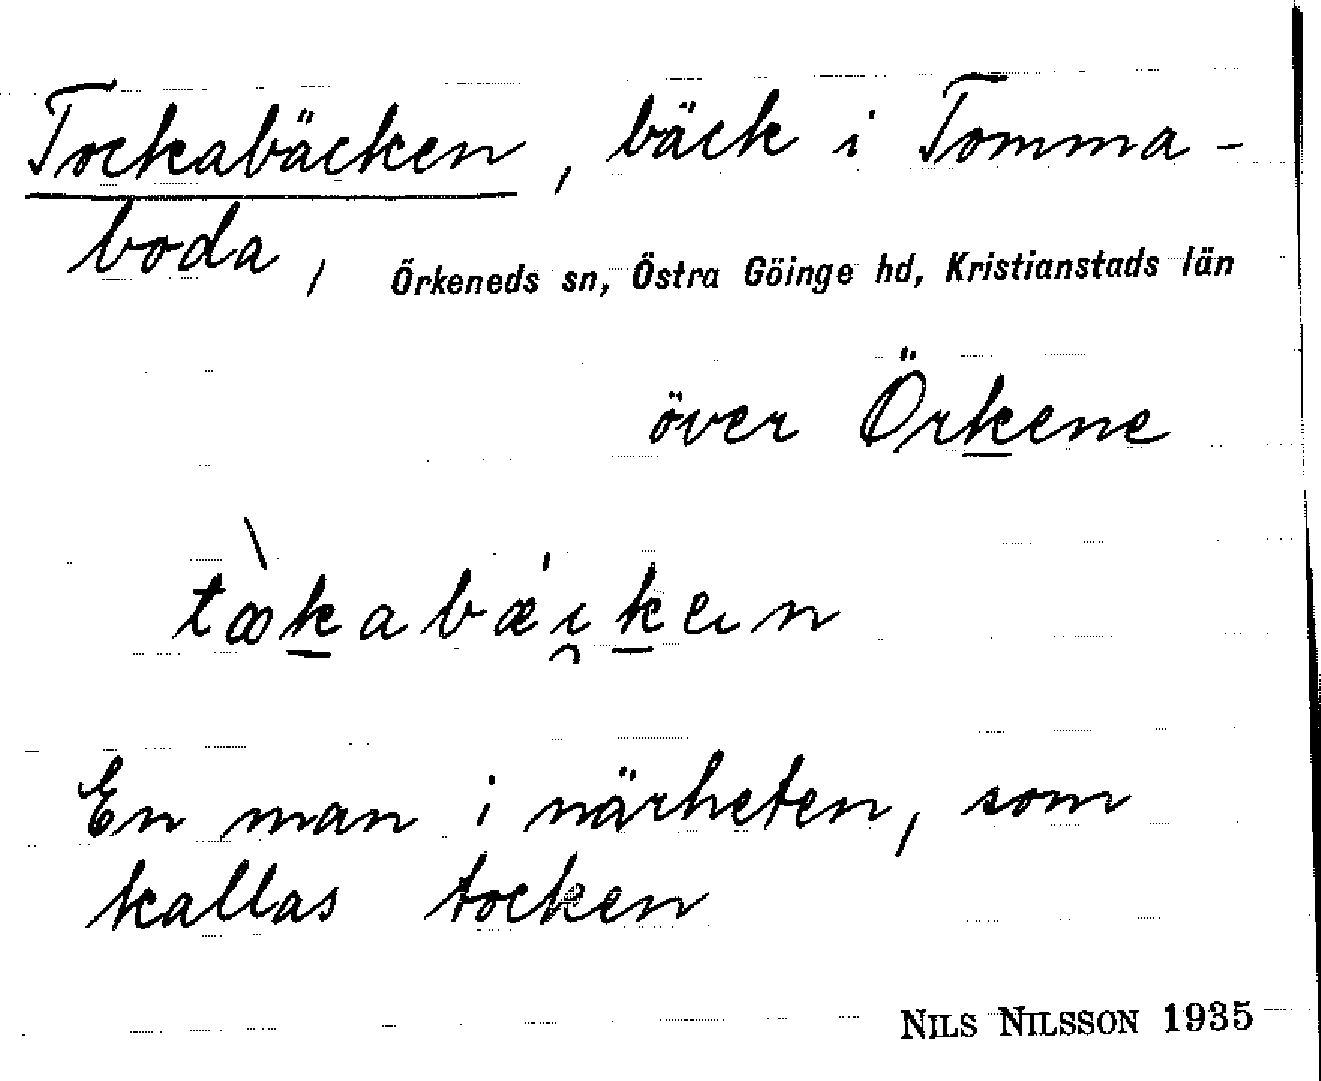 Tockabäcken, bäck i Tomma-
boda, Örkeneds sn, Östra Göinge hd, Kristianstads län
över Örkene
En man i närheten, som
kallas tocken
NILS NILSSON 1935